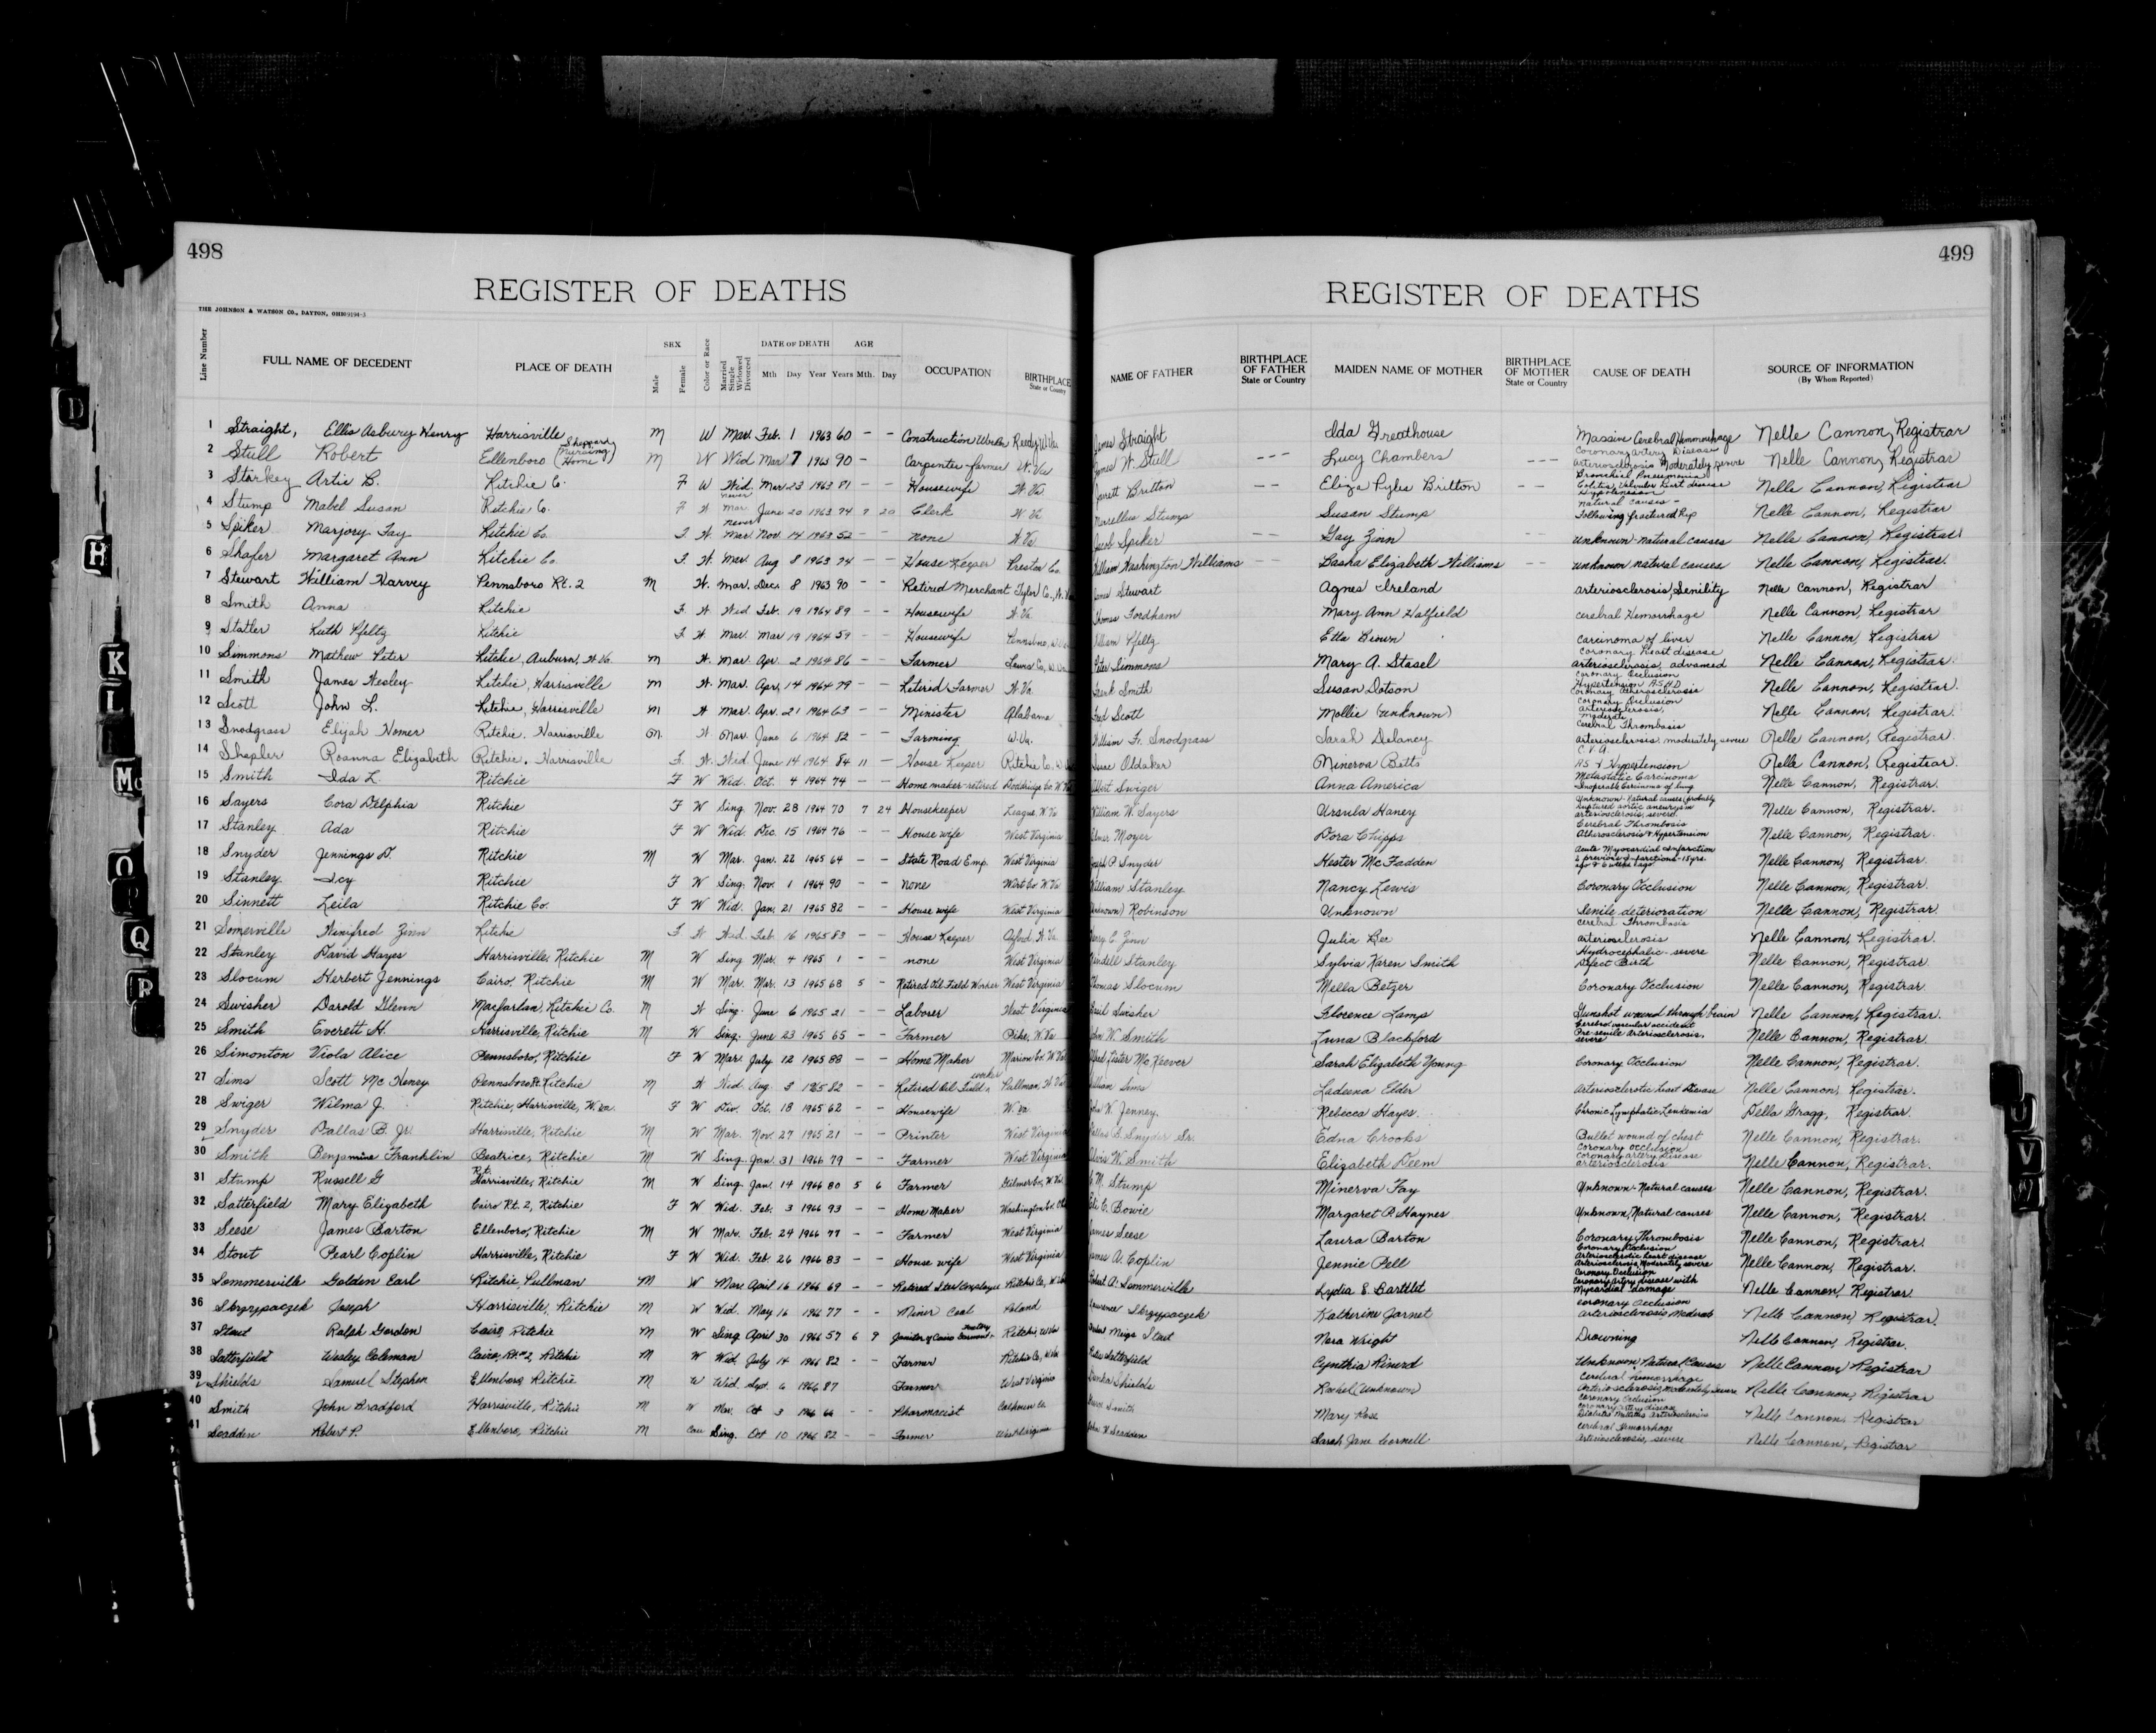 498
REGISTER OF DEATHS
THE JOHNSON & WATSON CO., DAYTON, OHIO
Line Number FULL NAME OF DECEDENT PLACE OF DEATH SEX Male Female Color or Race Married Single Widowed Divorced DATE OF DEATH Mth Day Year AGE Years Mth. Day OCCUPATION BIRTHPLACE State or Country
1 Straight, Ellis Asbury Henry Harrisville M W Mar. Feb. 1 1963 60 - - Construction
2 Stull Robert Ellenboro (Sheppard Nursing Home) M W Wid Mar 7 1963 90 - Carpenter-farmer W. Va
3 Starkey Artie B. Ritchie C. F W Wid. Mar 23 1963 81 - - Housewife W. Va
4 Stump Mabel Susan Ritchie C. F W. never Mar. June 20 1963 74 9 20 Clerk W Va
5 Spiker Marjory Fay Ritchie Co. F. W. never Mar Nov. 14 1963 52 - - none W. Va
6 Shafer Margaret Ann Ritchie Co. F. W. Mar. Aug 8 1963 74 - - House Keeper Preston Co.
7 Stewart William Harvey Pennsboro Rt. 2 M W. Mar. Dec. 8 1963 90 - - Retired Merchant Tyler Co., W. Va
8 Smith Anna Ritchie F. W Wid Feb. 19 1964 89 - - Housewife W. Va
9 Statler Ruth Pfeltz Ritchie F. W. Mar. Mar 19 1964 59 - - Housewife Pennsboro, W. Va
10 Simmons Mathew Peter Ritchie, Auburn, W. Va. M W. Mar Apr. 2 1964 86 - - Farmer Lewis Co, W. Va.
11 Smith James Wesley Ritchie, Harrisville M W. Mar. Apr. 14 1964 79 - - Retired Farmer W. Va.
12 Scott John L. Ritchie, Harrisville M W Mar. Apr. 21 1964 63 - - Minister Alabama
13 Snodgrass Elijah Homer Ritchie, Harrisville M. W. Mar. June 6 1964 82 - - Farming W. Va.
14 Roanna Elizabeth Ritchie, Harrisville F. W. Wid. June 14 1964 84 11 - House Keeper Ritchie C.
15 Smith Ida L. Ritchie F W Wid. Oct. 4 1964 74 - - Home maker-retired Doddridge Co. W. Va
16 Sayers Cora Delphia Ritchie F W Sing. Nov. 28 1964 70 7 24 Housekeeper League, W. Va
17 Stanley Ada Ritchie F W Wid. Dec. 15 1964 76 - - House wife West Virginia
18 Snyder Jennings D. Ritchie M W Mar. Jan. 22 1965 64 - - State Road Emp. West Virginia
19 Stanley Icy Ritchie F W Sing. Nov. 1 1964 90 - - none Wirt Co. W. Va
20 Sinnett Leila Ritchie Co. F W Wid. Jan. 21 1965 82 - - House wife West Virginia
21 Somerville Winifred Zinn Ritchie F. W Wid. Feb. 16 1965 83 - - House Keeper Oxford, W. Va.
22 Stanley David Hayes Harrisville, Ritchie M W Sing Mar. 4 1965 1 - - none West Virginia
23 Slocum Herbert Jennings Cairo, Ritchie M W Mar. Mar. 13 1965 68 5 - Retired Oil Field Worker West Virginia
24 Swisher Darold Glenn Macfarlan, Ritchie Co. M W Sing. June 6 1965 21 - - Laborer West Virginia
25 Smith Everett H. Harrisville, Ritchie M W Sing. June 23 1965 65 - - Farmer Pike, W. Va
26 Simonton Viola Alice Pennsboro, Ritchie F W Mar. July 12 1965 88 - - Home Maker Marion Co. W. Va
27 Sims Scott McHenry Pennsboro Rt. Ritchie M W Wid. Aug. 3 1965 82 - - Retired Oil Field worker Pullman, W. Va
28 Swiger Wilma J. Ritchie, Harrisville, W. Va. F W Div. Oct. 18 1965 62 - - Housewife W. Va.
29 Snyder Dallas B. Jr. Harrisville, Ritchie M W Mar. Nov. 27 1965 21 - - Printer West Virginia
30 Smith Benjamine Franklin Beatrice, Ritchie M W Sing. Jan. 31 1966 79 - - Farmer West Virginia
31 Stump Russell G Rt. Harrisville, Ritchie M W Sing. Jan. 14 1966 80 5 6 Farmer Gilmer Co., W. Va
32 Satterfield Mary Elizabeth Cairo Rt. 2, Ritchie F W Wid. Feb. 3 1966 93 - - Home Maker Washington Co.
33 Seese James Barton Ellenboro, Ritchie M W Mar. Feb. 24 1966 77 - - Farmer West Virginia
34 Stout Pearl Coplin Harrisville, Ritchie F W Wid. Feb. 26 1966 83 - - House wife West Virginia
35 Sommerville Golden Earl Ritchie, Pullman M W Mar. April 16 1966 69 - - Retired Steel Employee Ritchie Co.
36 Skrzypaczek Joseph Harrisville, Ritchie M W Wid. May 16 1966 77 - - Miner Coal Poland
37 Stout Ralph Gordon Cairo, Ritchie M W Sing April 30 1966 57 6 9 Janitor Cairo Ritchie
38 Satterfield Wesley Coleman Cairo, Rt. #2, Ritchie M W Wid. July 14 1966 82 - - Farmer Ritchie Co.
39 Shields Samuel Stephen Ellenboro, Ritchie M W Wid. Sept. 6 1966 87 Farmer West Virginia
40 Smith John Bradford Harrisville, Ritchie M W Mar. Oct 3 1966 66 - - Pharmacist Calhoun Co
41 Scadden Robert P. Ellenboro, Ritchie M Cau Sing. Oct 10 1966 82 - - Farmer West Virginia
499
REGISTER OF DEATHS
NAME OF FATHER BIRTHPLACE OF FATHER State or Country MAIDEN NAME OF MOTHER BIRTHPLACE OF MOTHER State or Country CAUSE OF DEATH SOURCE OF INFORMATION (By Whom Reported)
James Straight Ida Greathouse Massive Cerebral Hemmorhage Nelle Cannon, Registrar
James W. Stull - - - Lucy Chambers - - - Coronary artery Disease arteriosclerosis Moderately severe Nelle Cannon, Registrar
Jarrett Britton - - Eliza Pyles Britton - - Bronchial Pneumonia Nelle Cannon, Registrar
Marsellus Stump Susan Stump natural causes - Following fractured hip Nelle Cannon, Registrar
Jacob Spiker - - Gay Zinn - - unknown natural causes Nelle Cannon, Registrar
William Washington Williams - - Basha Elizabeth Williams - - unknown natural causes Nelle Cannon, Registrar.
James Stewart Agnes Ireland arteriosclerosis, Senility Nelle Cannon, Registrar
Thomas Fordham Mary Ann Hatfield cerebral Hemorrhage Nelle Cannon, Registrar
William Pfeltz Etta Brown Carcinoma of liver Nelle Cannon, Registrar
Peter Simmons Mary A. Stasel Coronary heart disease arteriosclerosis, advanced Nelle Cannon, Registrar.
Frank Smith Susan Dotson Coronary Occlusion Hypertension A.S.H.D Nelle Cannon, Registrar.
Fred Scott Mollie (unknown) Coronary atherosclerosis Coronary Occlusion Nelle Cannon, Registrar.
William Fr. Snodgrass Sarah Delaney arteriosclerosis, moderate Cerebral Thrombosis Nelle Cannon, Registrar.
Oldaker Minerva Batts arteriosclerosis, moderately severe C.V.A. Nelle Cannon, Registrar.
Albert Swiger Anna America A.S. & Hypertension Metastatic Carcinoma Inoperable carcinoma of lung Nelle Cannon, Registrar.
William W. Sayers Ursula Haney Unknown-Natural causes (probably ruptured aortic aneurysm arteriosclerosis, severe) Nelle Cannon, Registrar.
Elmer Moyer Dora Chipps Cerebral Thrombosis Atherosclerosis & Hypertension Nelle Cannon, Registrar.
Joseph P. Snyder Hester McFadden Acute Myocardial Infarction Nelle Cannon, Registrar.
William Stanley Nancy Lewis Coronary Occlusion Nelle Cannon, Registrar.
(Unknown) Robinson Unknown Senile deterioration Nelle Cannon, Registrar.
Zinn Julia Bee Cerebral Thrombosis arteriosclerosis Nelle Cannon, Registrar.
Wendell Stanley Sylvia Karen Smith Hydrocephalic-severe Defect Birth Nelle Cannon, Registrar.
Thomas Slocum Mella Betzer Coronary Occlusion Nelle Cannon, Registrar.
Swisher Florence Lamp Gunshot wound through brain Nelle Cannon, Registrar.
John W. Smith Luna Blackford Cerebral vascular accident Pre-senile Arteriosclerosis, severe Nelle Cannon, Registrar.
McKeever Sarah Elizabeth Young Coronary Occlusion Nelle Cannon, Registrar.
William Sims Ladeena Elder Arteriosclerotic Heart Disease Nelle Cannon, Registrar.
John W. Jenney Rebecca Hayes Chronic Lymphatic Leukemia Della Gragg, Registrar.
Dallas B. Snyder Sr. Edna Crooks Bullet wound of chest Nelle Cannon, Registrar.
W. Smith Elizabeth Deem Coronary Occlusion Coronary artery Disease arteriosclerosis Nelle Cannon, Registrar.
M. Stump Minerva Fay Unknown-Natural causes Nelle Cannon, Registrar.
C. Bowie Margaret P. Haynes Unknown, Natural causes Nelle Cannon, Registrar.
James Seese Laura Barton Coronary Thrombosis Nelle Cannon, Registrar.
James A. Coplin Jennie Pell Coronary Occlusion Arteriosclerotic heart disease Arteriosclerosis, Moderately severe Nelle Cannon, Registrar.
A. Sommerville Lydia E. Bartlett Coronary Occlusion Coronary artery disease with Myocardial damage Nelle Cannon, Registrar
Lawrence Skrzypaczek Katherine Jarnet coronary occlusion arteriosclerosis, Moderate Nelle Cannon, Registrar.
Stout Nora Wright Drowning Nelle Cannon, Registrar.
Satterfield Cynthia Unknown, Natural Causes Nelle Cannon, Registrar
Shields Rachel (Unknown) Cerebral hemorrhage Arteriosclerosis, Moderately Severe Nelle Cannon, Registrar
Smith Mary Rose Coronary Occlusion Coronary artery disease Diabetes Mellitus Arteriosclerosis Nelle Cannon, Registrar
John W. Scadden Sarah Jane Cornell Cerebral Hemorrhage Arteriosclerosis, severe Nelle Cannon, Registrar
D
H
K
L
Mc
O
Q
R
U
V
W